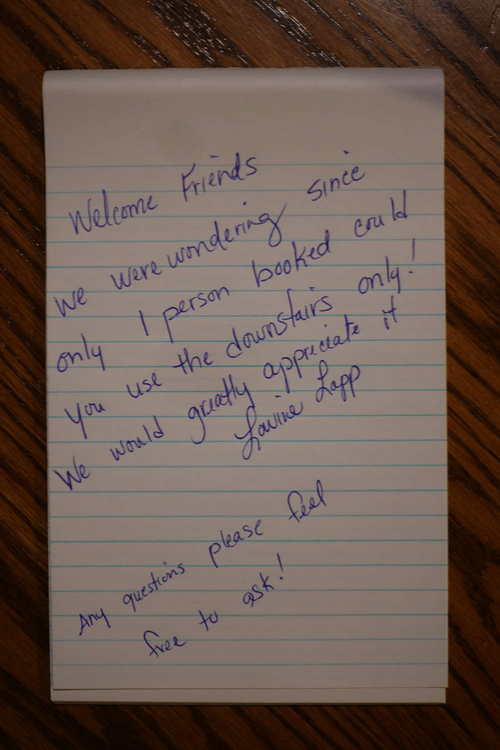 Welcome Friends
We were wondering since
only 1 person booked could
you use the downstairs only!
We would greatly appreciate it
Lavina Lapp
Any questions please feel
free to ask!